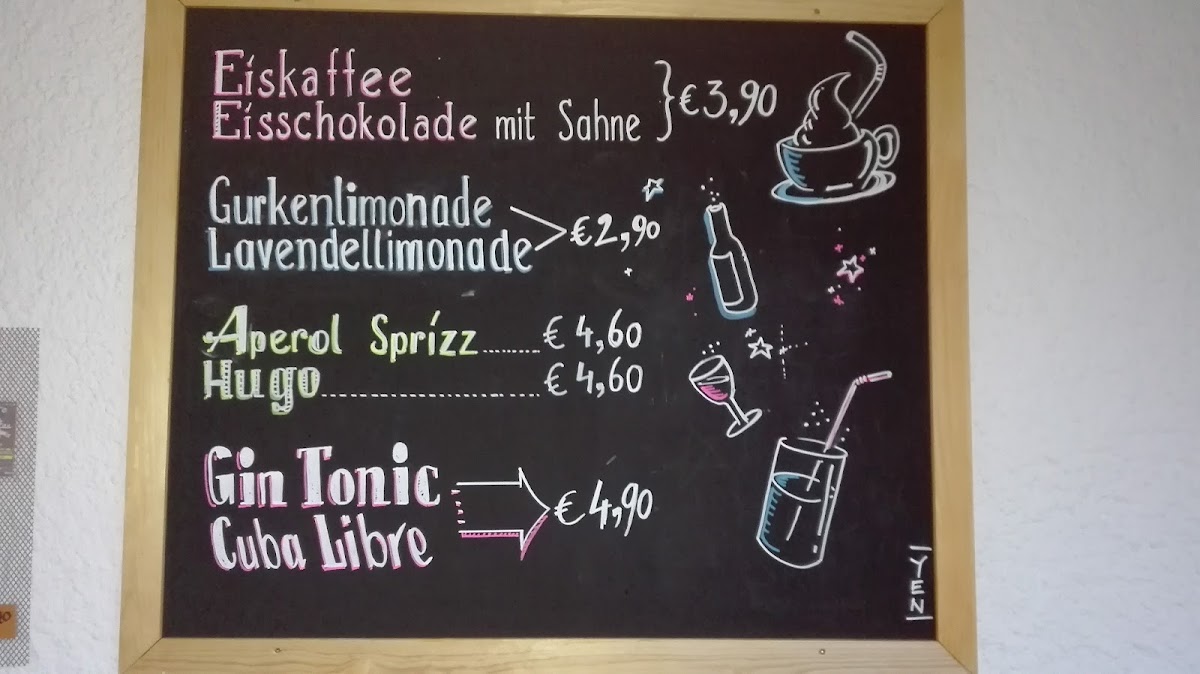 Eiskaffee
Eisschokolade mit Sahne } € 3,90
Gurkenlimonade
Lavendellimonade > € 2,90
Aperol Sprizz ........ € 4,60
Hugo ........................ € 4,60
Gin Tonic
Cuba Libre € 4,90
YEN